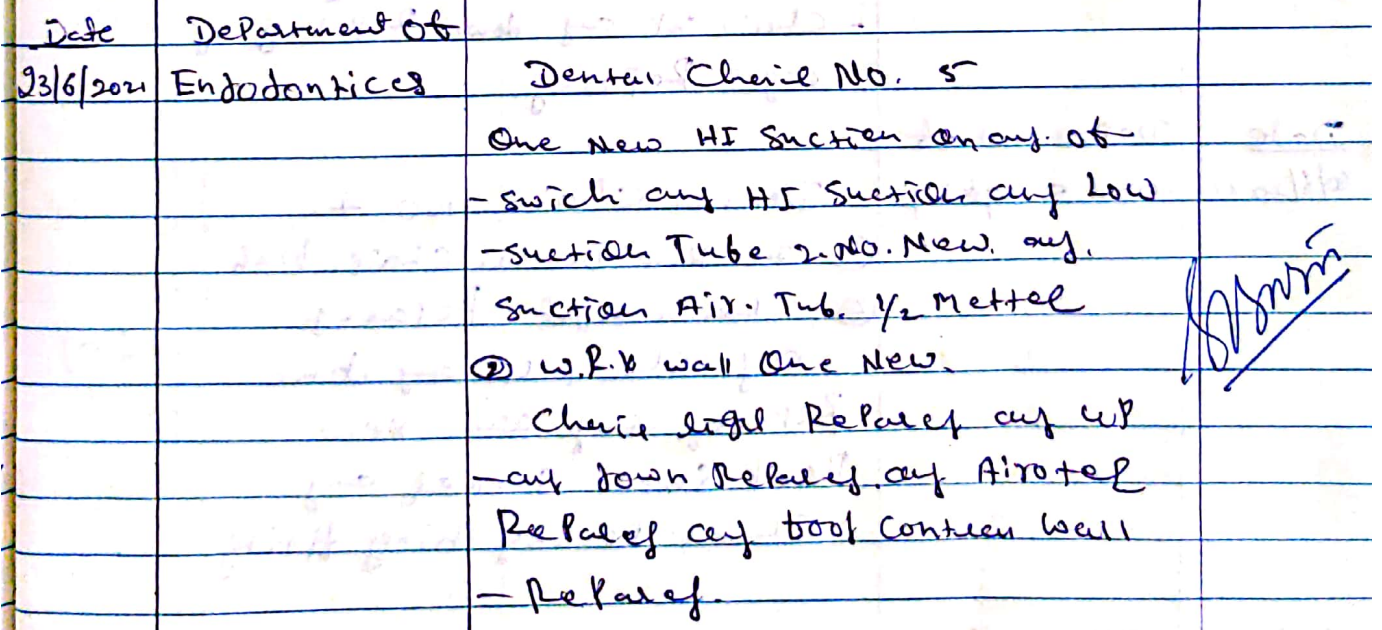 Date Department of
23/6/2021 Endodontices Dental Chaie No. 5
One New HI Suction on any of
- swich any HI Suction any Low
- suction Tube 2. No. New. any.
Suction Air. Tub. 1/2 Mettel
② w.R.V wall One New.
Chaie light Repared any up
- any down Repared. any Airotel
Repared any foot Contren wall
- Repared.